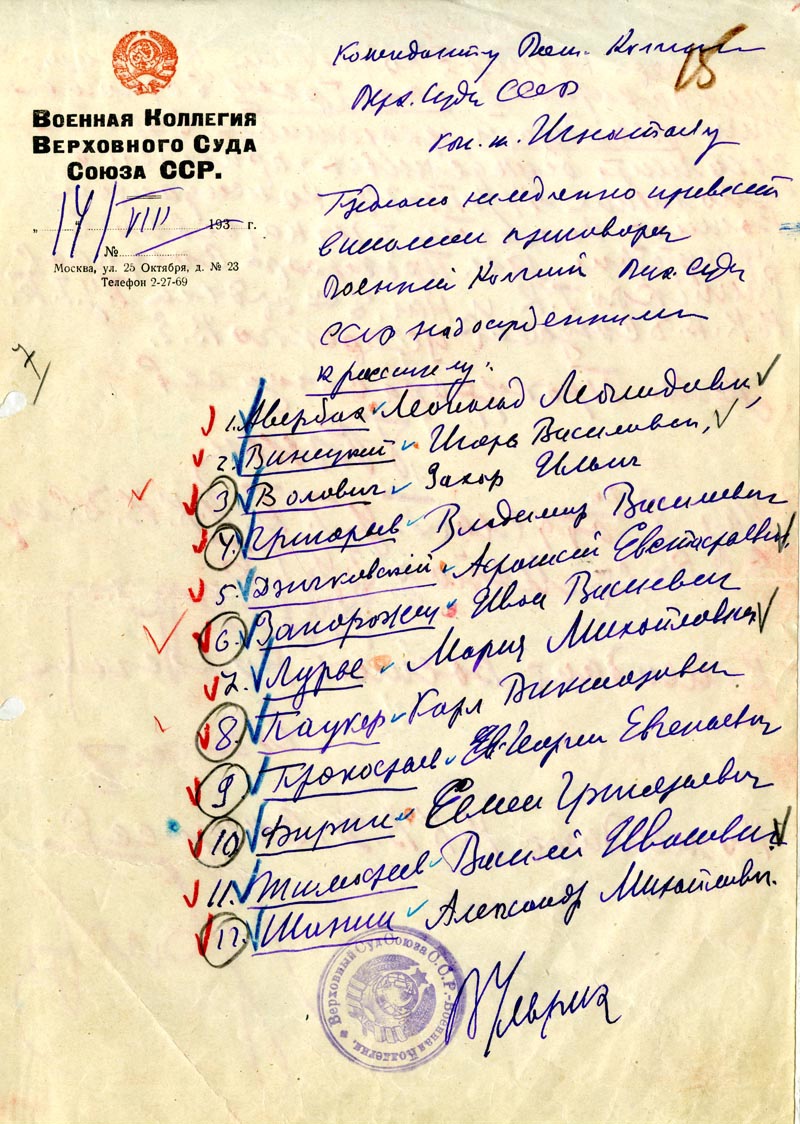 Военная Коллегия
Верховного Суда
Союза ССР.
„14" VIII 193 г.
№
Москва, ул. 25 Октября, д. № 23
Телефон 2-27-69
15
Коменданту Воен. Коллегии
Верх. Суда СССР
кап. т. Игнатьеву
Предлагаю немедленно привести
в исполнение приговора
Военной Коллегии Верх. Суда
СССР над осужденными
к расстрелу:
1. Авербах Леопольд Леонидович
2. Винецкий Игорь Васильевич
3. Волович Захар Ильич
4. Григорьев Владимир Васильевич
5. Евстафьевич
6. Запорожец Иван Васильевич
7. Лурье Мария Михайловна
8. Паукер Карл Викторович
9. Прокофьев Георгий Евгеньевич
10. Фирин Семен Григорьевич
11. Тимофеев Василий Иванович
12. Шанин Александр Михайлович.
Верховный Суд Союза С.С.Р. - Военная Коллегия.
В Ульрих